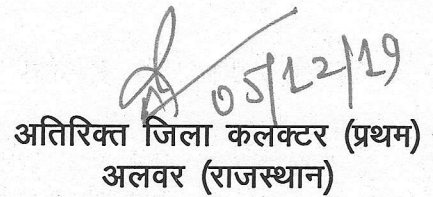 05/12/19
अतिरिक्त जिला कलक्टर (प्रथम)
अलवर (राजस्थान)